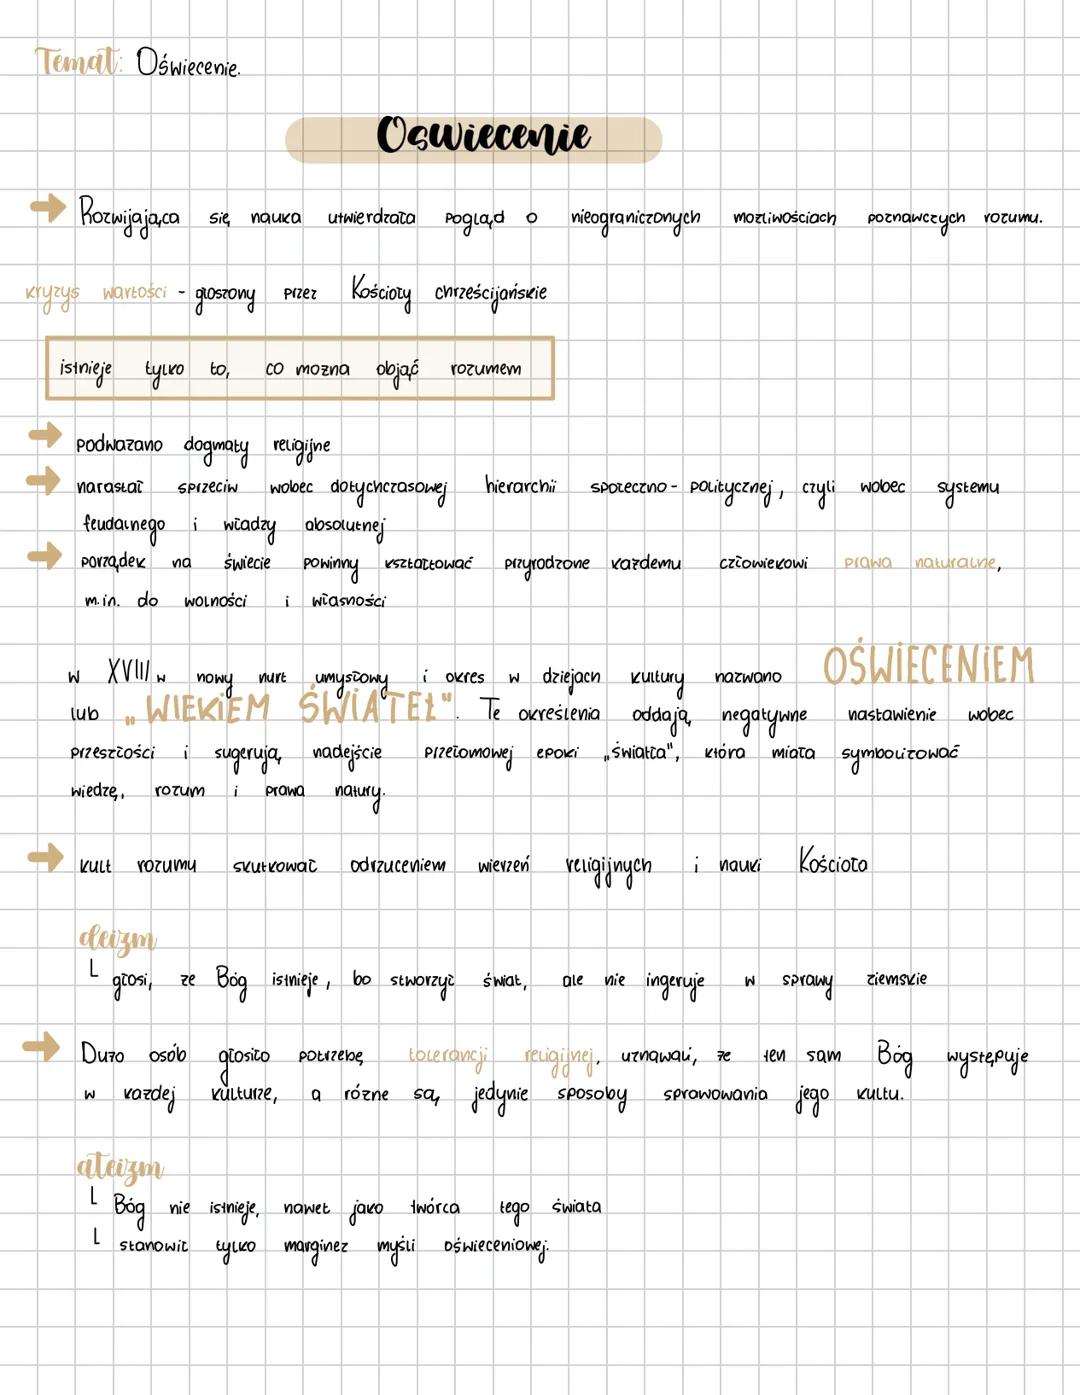 Temat: Oświecenie.
Oswiecenie
→ Rozwijająca się nauka utwierdzała pogląd o nieograniczonych możliwościach poznawczych rozumu.
kryzys wartości - głoszony przez Kościoły chrześcijańskie
istnieje tylko to, co można objąć rozumem
→ podważano dogmaty religijne
→ narastał sprzeciw wobec dotychczasowej hierarchii społeczno - politycznej, czyli wobec systemu
feudalnego i władzy absolutnej
→ porządek na świecie powinny kształtować przyrodzone każdemu człowiekowi prawa naturalne,
m.in. do wolności i własności
w XVIII w nowy nurt umysłowy i okres w dziejach kultury nazwano OŚWIECENIEM
lub „WIEKIEM ŚWIATEŁ". Te określenia oddają negatywne nastawienie wobec
przeszłości i sugerują nadejście przełomowej epoki „światła", która miała symbolizować
wiedzę, rozum i prawa natury.
→ kult rozumu skutkował odrzuceniem wierzeń religijnych i nauki Kościoła
deizm
└ głosi, że Bóg istnieje, bo stworzył świat, ale nie ingeruje w sprawy ziemskie
→ Dużo osób głosiło potrzebę tolerancji religijnej, uznawali, że ten sam Bóg występuje
w każdej kulturze, a różne są jedynie sposoby sprawowania jego kultu.
ateizm
└ Bóg nie istnieje, nawet jako twórca tego świata
└ stanowił tylko marginez myśli oświeceniowej.